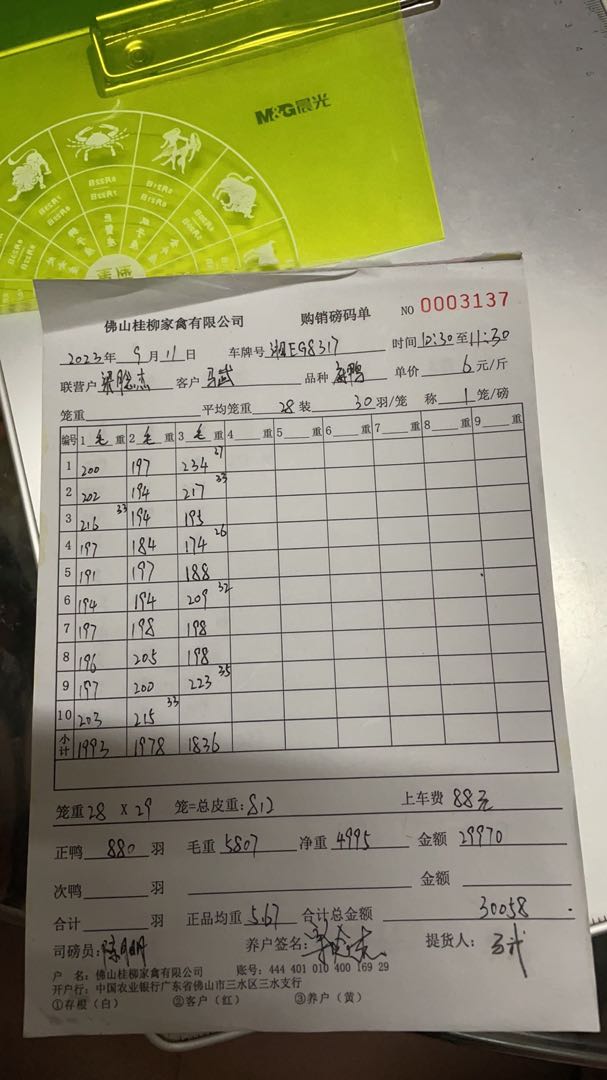 M&G晨光
佛山桂柳家禽有限公司 购销磅码单 NO 0003137
2023年 9月 11日 车牌号 湘EG8317 时间 10:30 至 11:30
联营户 梁聪杰 客户 马武 品种 单价 6 元/斤
笼重 平均笼重 28 装 30 羽/笼 称 1 笼/磅
编号 1 毛 重 2 毛 重 3 毛 重 4 重 5 重 6 重 7 重 8 重 9 重
1 200 197 234 27
2 202 194 217 33
3 216 33 194 193
4 197 184 174 26
5 191 197 188
6 194 194 209 32
7 197 198 198
8 196 205 198
9 197 200 223 35
10 203 215 33
小计 1993 1978 1836
笼重 28 X 29 笼=总皮重: 812 上车费 88元
正鸭 880 羽 毛重 5807 净重 4995 金额 29970
次鸭 羽 金额
合计 羽 正品均重 5.67 合计总金额 30058
司磅员: 养户签名: 提货人:
户 名: 佛山桂柳家禽有限公司 账号: 444 401 010 400 169 29
开户行: 中国农业银行广东省佛山市三水区三水支行
①存根(白) ②客户(红) ③养户(黄)